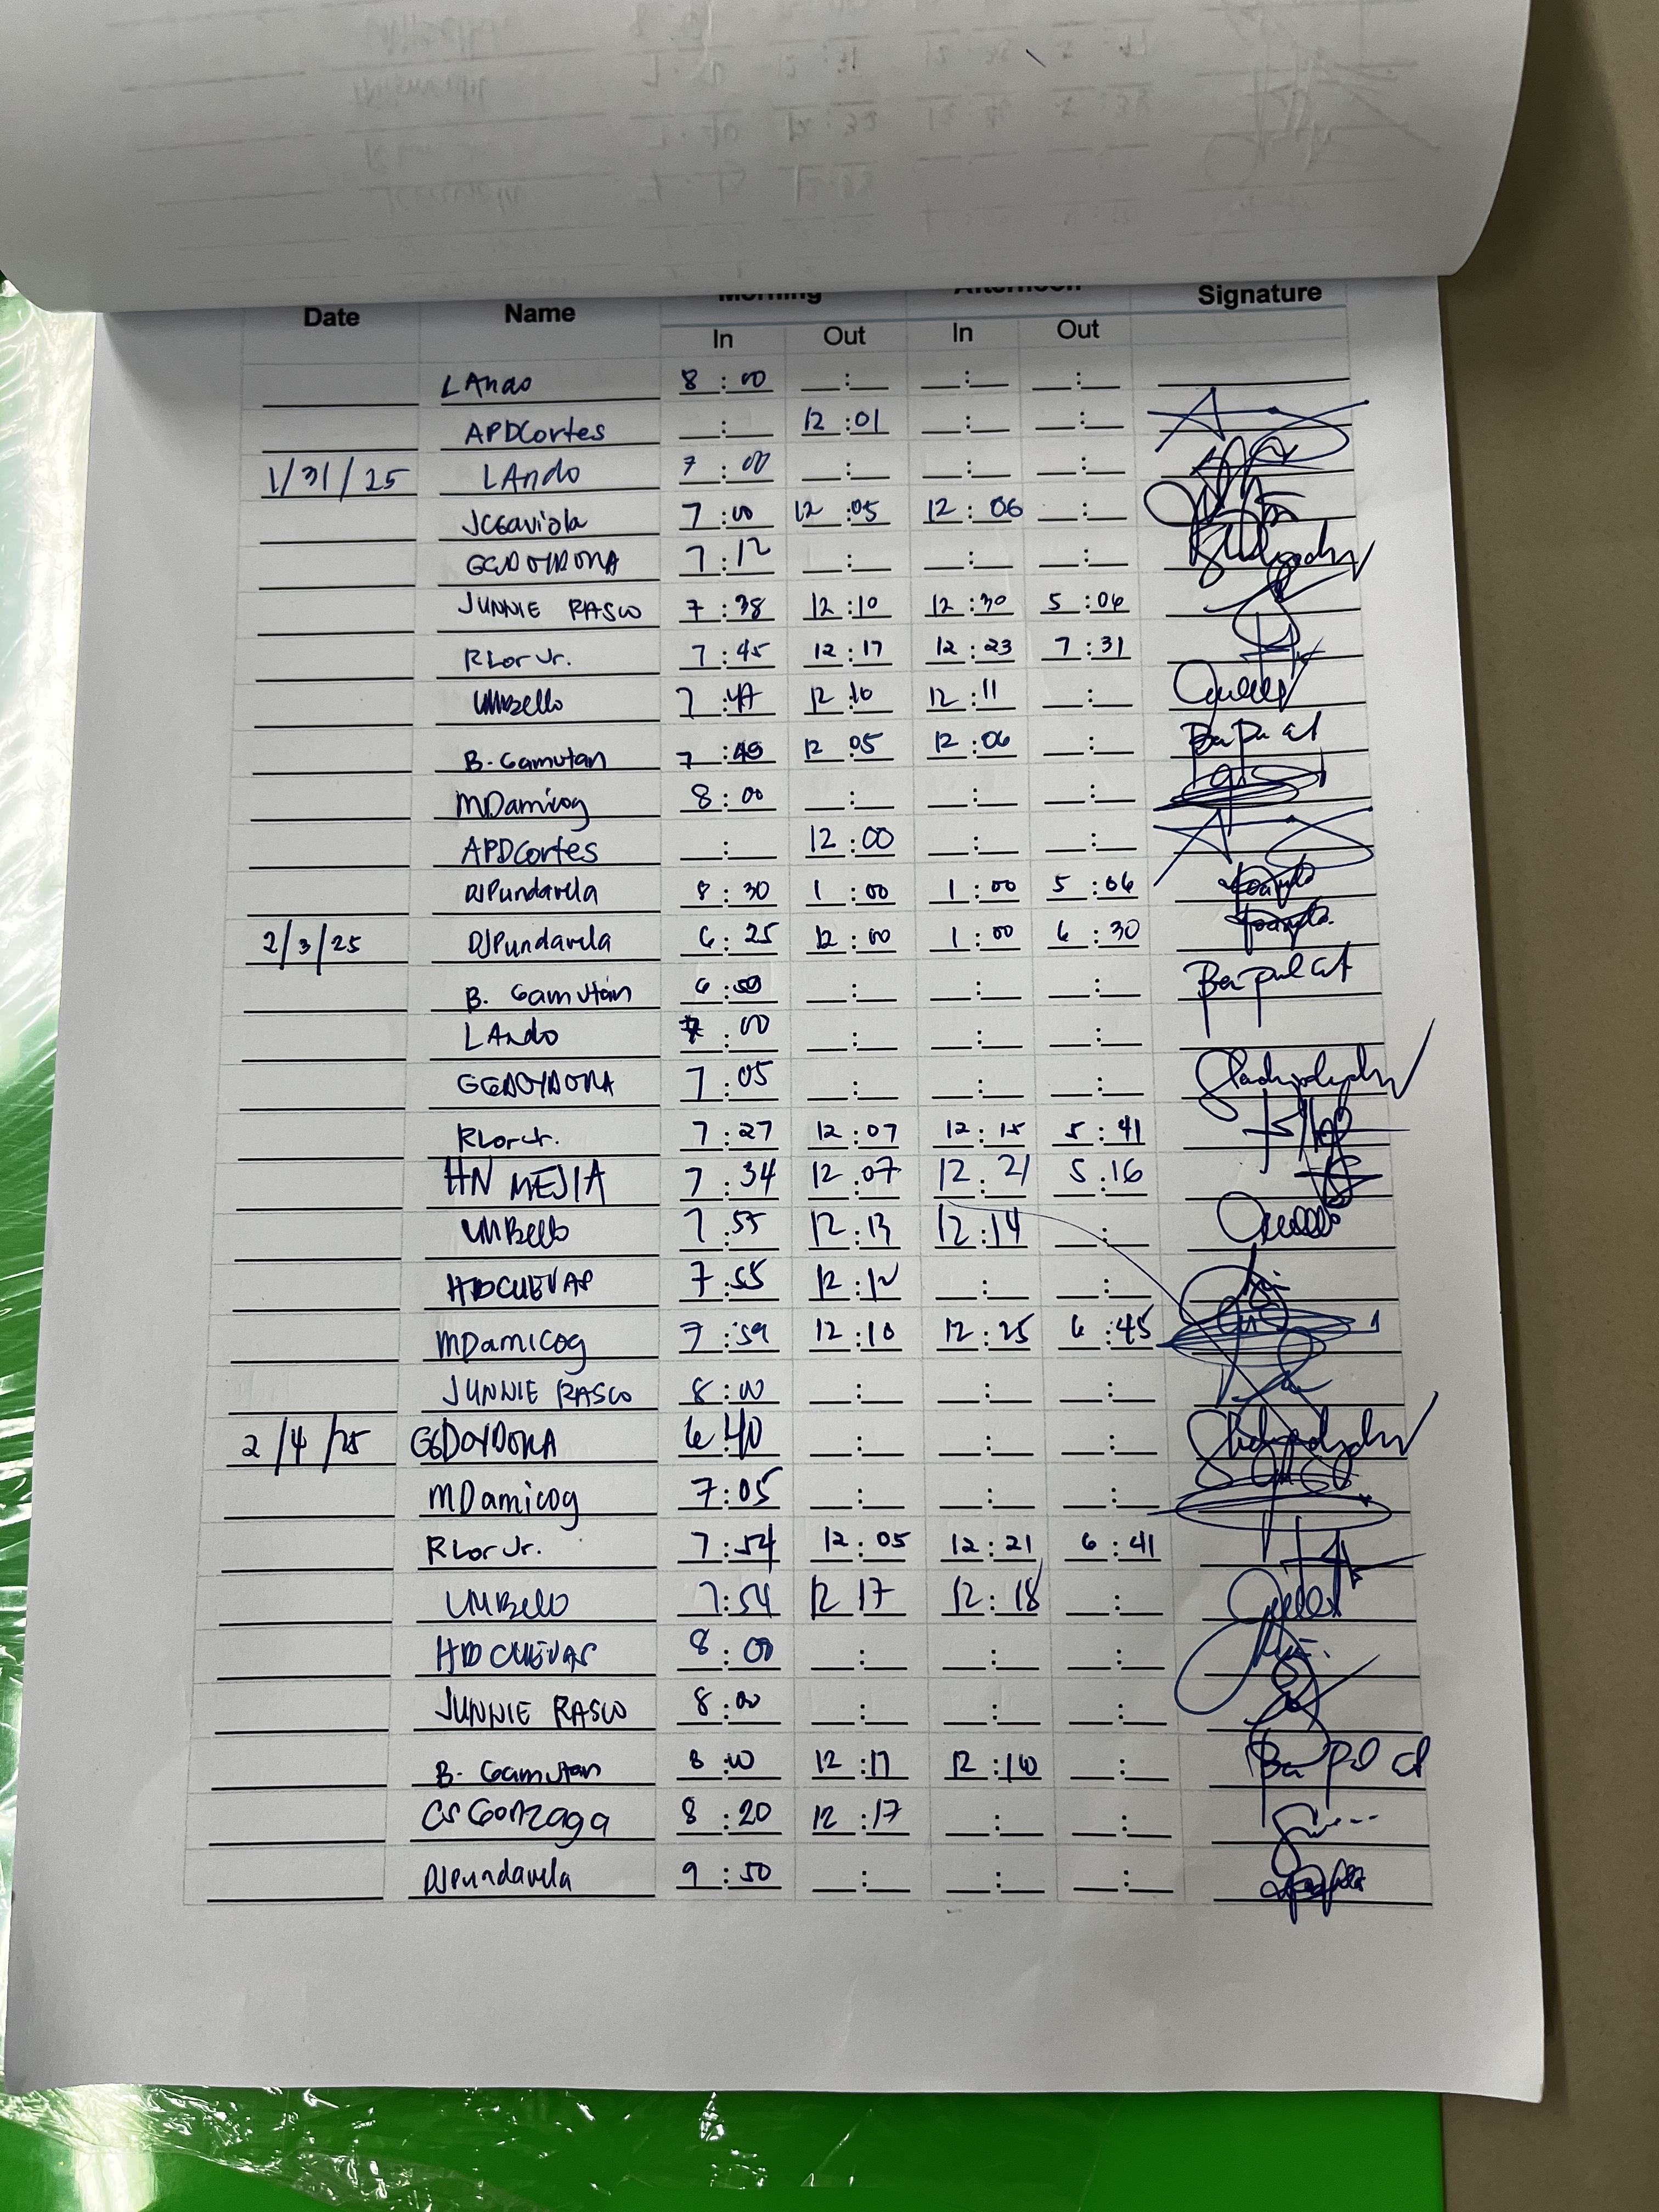 Date Name Morning Afternoon Signature
In Out In Out
LAndo 8:00 __:__ __:__ __:__
APDCortes __:__ 12:01 __:__ __:__
1/31/25 LAndo 7:00 __:__ __:__ __:__
JCGaviola 7:00 12:05 12:06 __:__
GGDOYDORA 7:12 __:__ __:__ __:__
JUNNIE RASCO 7:38 12:10 12:30 5:06
RLor Jr. 7:45 12:17 12:23 7:31
UMBello 7:47 12:10 12:11 __:__
B. Gamutan 7:49 12:05 12:06 __:__
MDamicog 8:00 __:__ __:__ __:__
APDCortes __:__ 12:00 __:__ __:__
DJPundavela 8:30 1:00 1:00 5:06
2/3/25 DJPundavela 6:25 12:00 1:00 6:30
B. Gamutan 6:50 __:__ __:__ __:__
LAndo 7:00 __:__ __:__ __:__
GGDOYDORA 7:05 __:__ __:__ __:__
RLor Jr. 7:27 12:07 12:15 5:41
HN MEJIA 7:34 12:07 12:21 5:16
UMBello 7:55 12:13 12:14 __:__
HDCUEVAS 7:55 12:12 __:__ __:__
MDamicog 7:59 12:10 12:25 6:45
JUNNIE RASCO 8:00 __:__ __:__ __:__
2/4/25 GGDOYDORA 6:40 __:__ __:__ __:__
MDamicog 7:05 __:__ __:__ __:__
RLor Jr. 7:54 12:05 12:21 6:41
UMBello 7:54 12:17 12:18 __:__
HDCUEVAS 8:00 __:__ __:__ __:__
JUNNIE RASCO 8:00 __:__ __:__ __:__
B. Gamutan 8:00 12:17 12:18 __:__
CS Gonzaga 8:20 12:17 __:__ __:__
DJPundavela 9:50 __:__ __:__ __:__